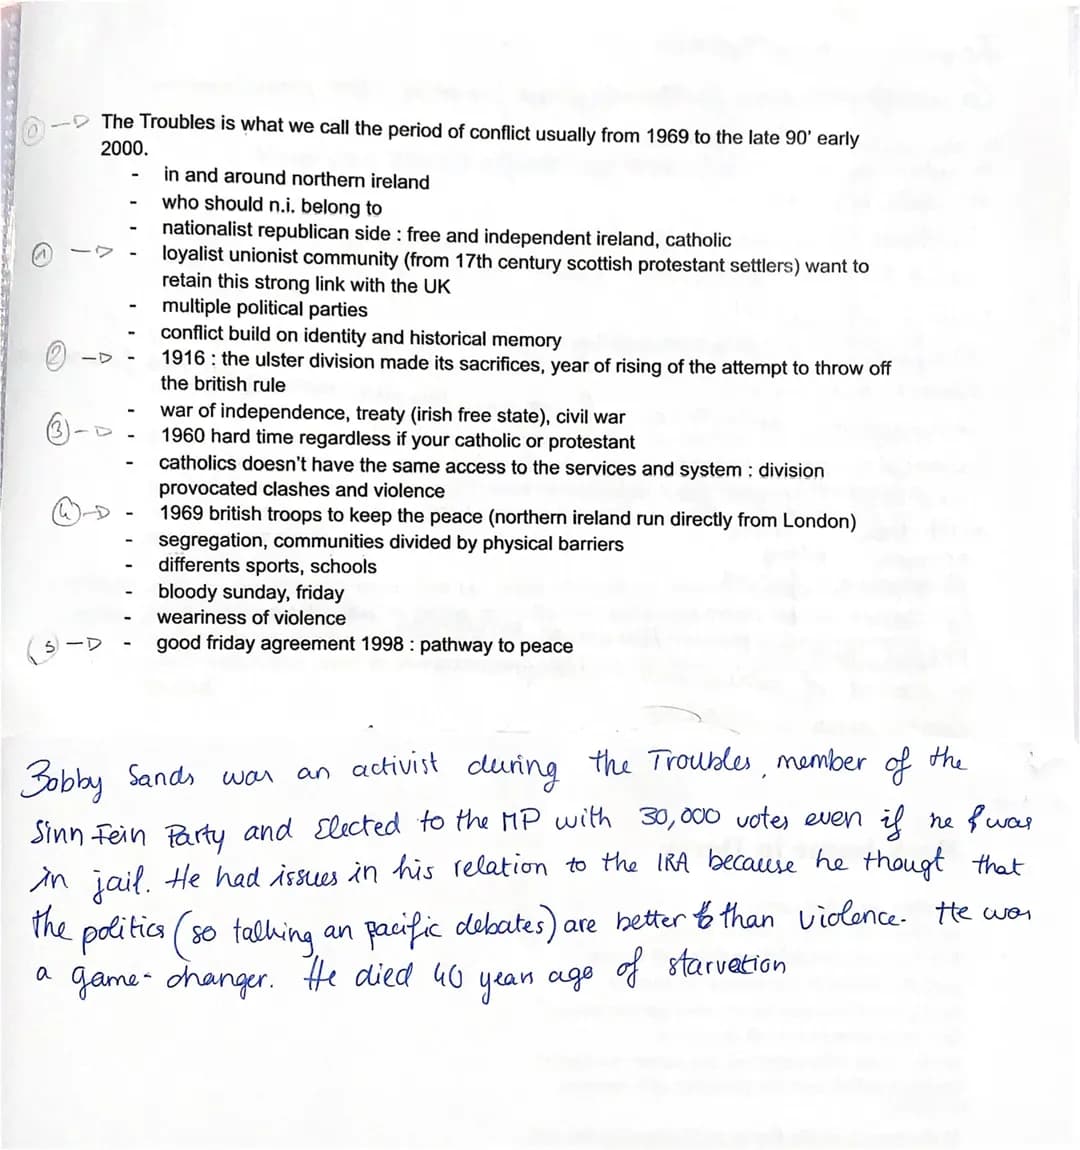 0 The Troubles is what we call the period of conflict usually from 1969 to the late 90' early
2000.
- in and around northern ireland
- who should n.i. belong to
- nationalist republican side : free and independent ireland, catholic
1 - loyalist unionist community (from 17th century scottish protestant settlers) want to
retain this strong link with the UK
- multiple political parties
- conflict build on identity and historical memory
2 - 1916 : the ulster division made its sacrifices, year of rising of the attempt to throw off
the british rule
- war of independence, treaty (irish free state), civil war
3 - 1960 hard time regardless if your catholic or protestant
- catholics doesn't have the same access to the services and system : division
provocated clashes and violence
4 - 1969 british troops to keep the peace (northern ireland run directly from London)
- segregation, communities divided by physical barriers
- differents sports, schools
- bloody sunday, friday
- weariness of violence
5 - good friday agreement 1998 : pathway to peace
Bobby Sands was an activist during the Troubles, member of the
Sinn Fein Party and Elected to the MP with 30,000 votes even if he was
in jail. He had issues in his relation to the IRA because he thougt that
the politics (so talking an pacific debates) are better than violence. He was
a game-changer. He died 40 years ago of starvation